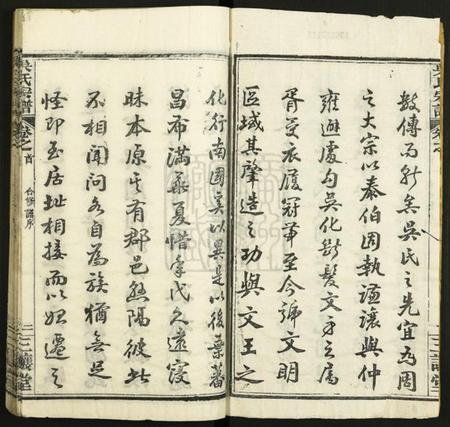 數傳而新矣吳氏之先宜為周
之大宗以泰伯固執謙讓與仲
雍遯處句吳化斷髮文身之屬
胥受衣履冠筆至今號文明
區域其肇造之功與文王之
化行南國莫以異是以後葉蕃
昌布滿華夏惜年代久遠寖
昧本原其有郡邑懸隔彼此
不相聞問各自為族猶無足
怪即至居址相接而以始遷之
吳氏宗譜
卷之首
合修譜序
三讓堂
吳氏宗譜
卷之首
三讓堂